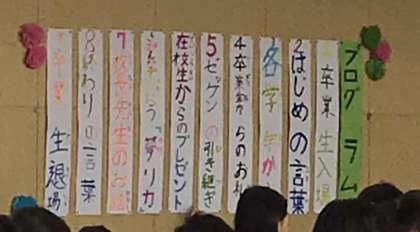 プログラム
1卒業生入場
2はじめの言葉
3各学年か
4卒業生からのお礼
5ゼッケンの引き継ぎ
在校生からのプレゼント
7校長先生のお話
8終わりの言葉
卒業生退場